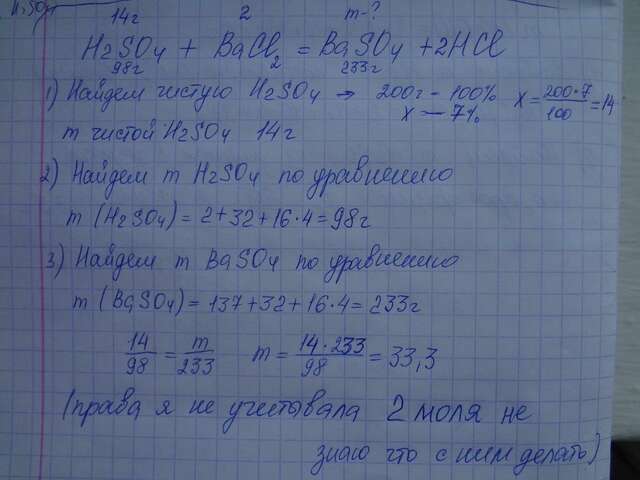 H₂SO₄
14г 2 m-?
H₂SO₄ + BaCl₂ = BaSO₄ + 2HCl
98г 233г
1) Найдем чистую H₂SO₄ → 200г - 100% x = 200·7/100 = 14
x — 7%
m чистой H₂SO₄ 14г
2) Найдем m H₂SO₄ по уравнению
m (H₂SO₄) = 2+32+16·4=98г
3) Найдем m BaSO₄ по уравнению
m (BaSO₄) = 137+32+16·4=233г
14/98 = m/233 m = 14·233/98 = 33,3
(права я не учетывала 2 моля не
знаю что с ним делать)